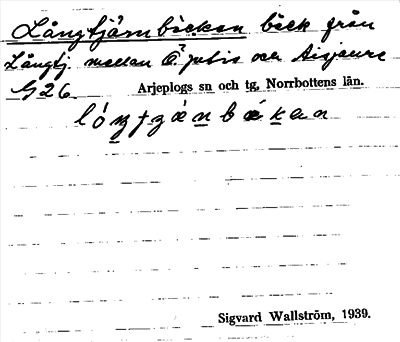 Långtjärnbäcken bäck från
Långtj. mellan Ö. Jutis och Aisjaure
G26 Arjeplogs sn och tg, Norrbottens län.
Sigvard Wallström, 1939.